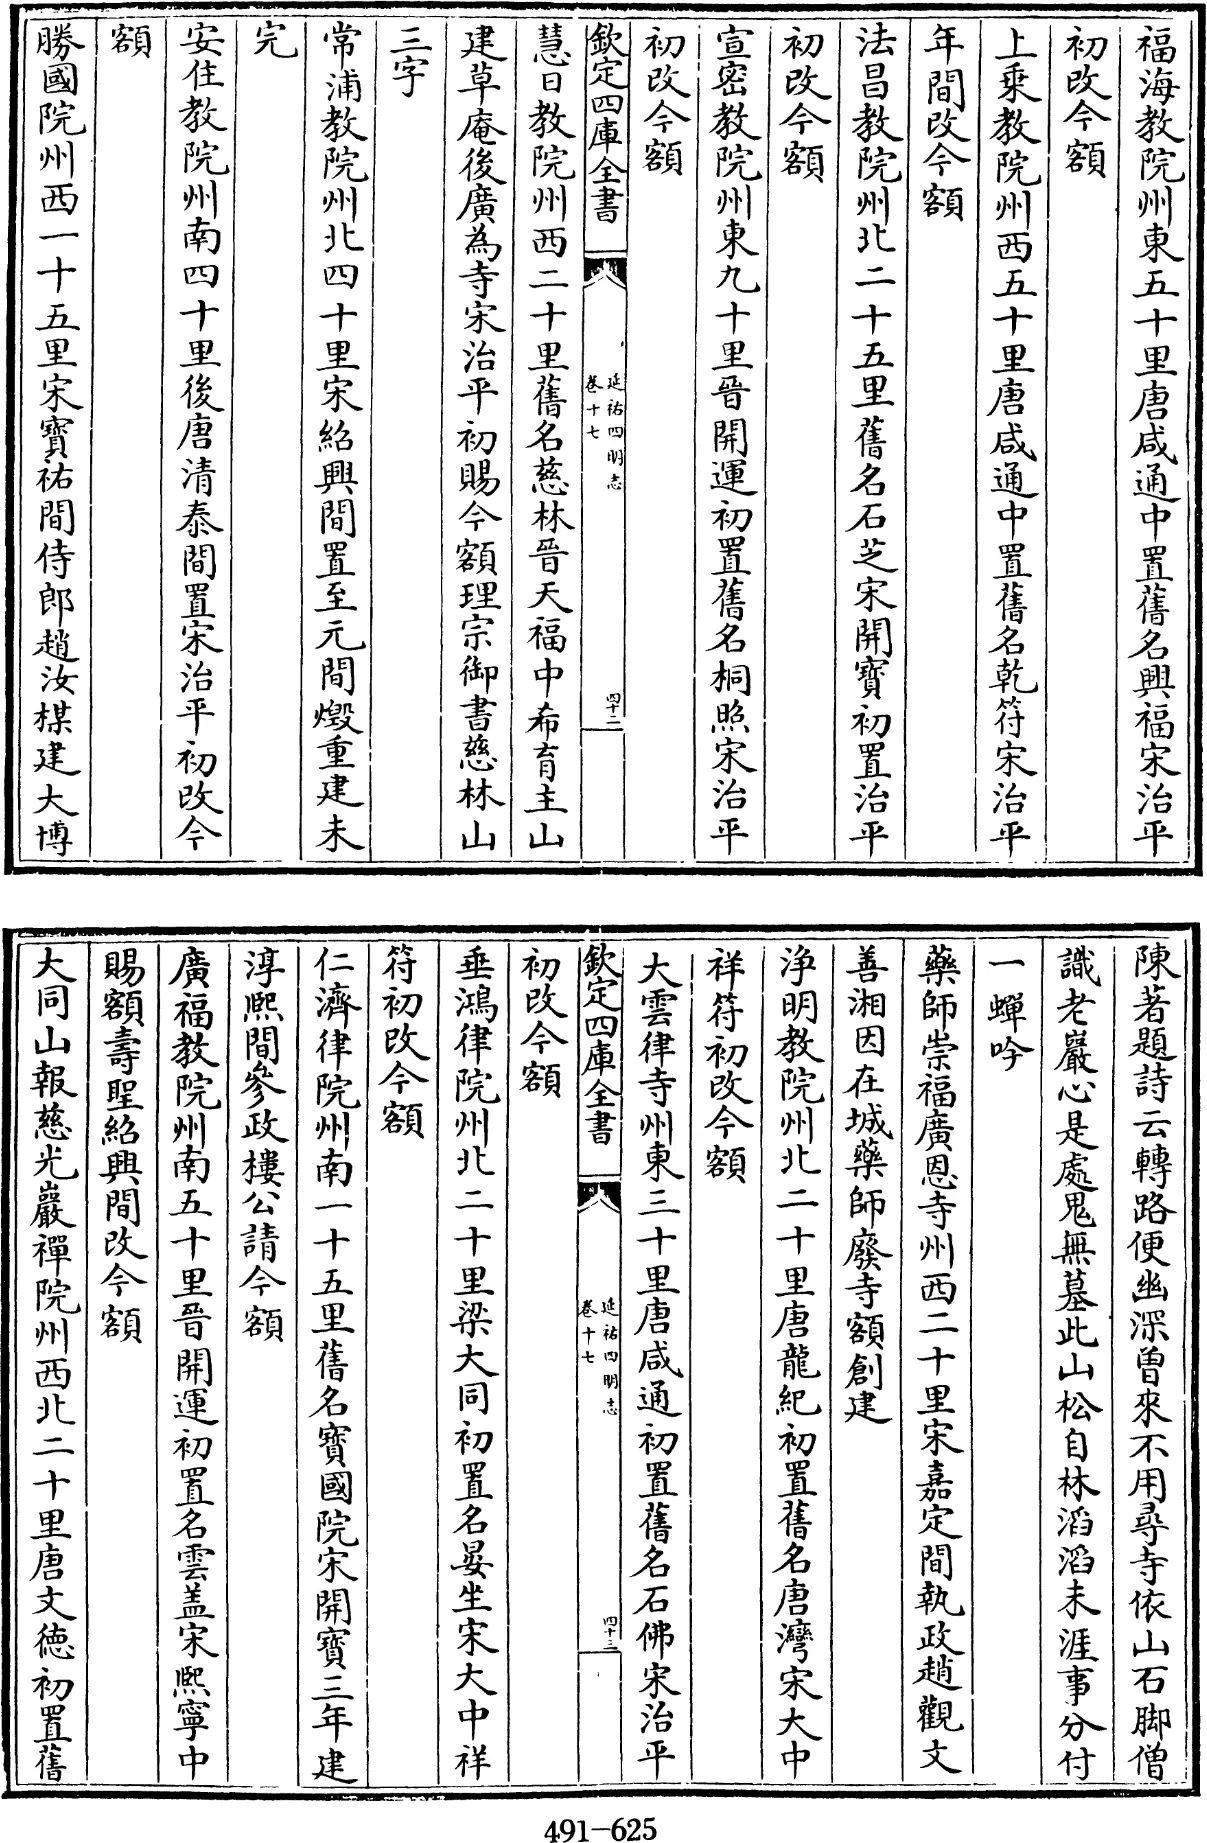 福海教院州東五十里唐咸通中置舊名興福宋治平
初改今額
上乘教院州西五十里唐咸通中置舊名乾符宋治平
年間改今額
法昌教院州北二十五里舊名石芝宋開寶初置治平
初改今額
宣密教院州東九十里晉開運初置舊名桐照宋治平
初改今額
欽定四庫全書
延祐四明志
卷十七
四十二
慧日教院州西二十里舊名慈林晉天福中希育主山
建草庵後廣為寺宋治平初賜今額理宗御書慈林山
三字
常浦教院州北四十里宋紹興間置至元間燬重建未
完
安住教院州南四十里後唐清泰間置宋治平初改今
額
勝國院州西一十五里宋寶祐間侍郎趙汝楳建大博
陳著題詩云轉路便幽深曽來不用尋寺依山石脚僧
識老巖心是處鬼無墓此山松自林滔滔未涯事分付
一蟬吟
藥師崇福廣恩寺州西二十里宋嘉定間執政趙觀文
善湘因在城藥師廢寺額創建
淨明教院州北二十里唐龍紀初置舊名唐灣宋大中
祥符初改今額
大雲律寺州東三十里唐咸通初置舊名石佛宋治平
欽定四庫全書
延祐四明志
卷十七
四十三
初改今額
垂鴻律院州北二十里梁大同初置名晏坐宋大中祥
符初改今額
仁濟律院州南一十五里舊名寶國院宋開寶三年建
淳熙間參政樓公請今額
廣福教院州南五十里晉開運初置名雲盖宋熙寧中
賜額壽聖紹興間改今額
大同山報慈光巖禪院州西北二十里唐文徳初置舊
491-625